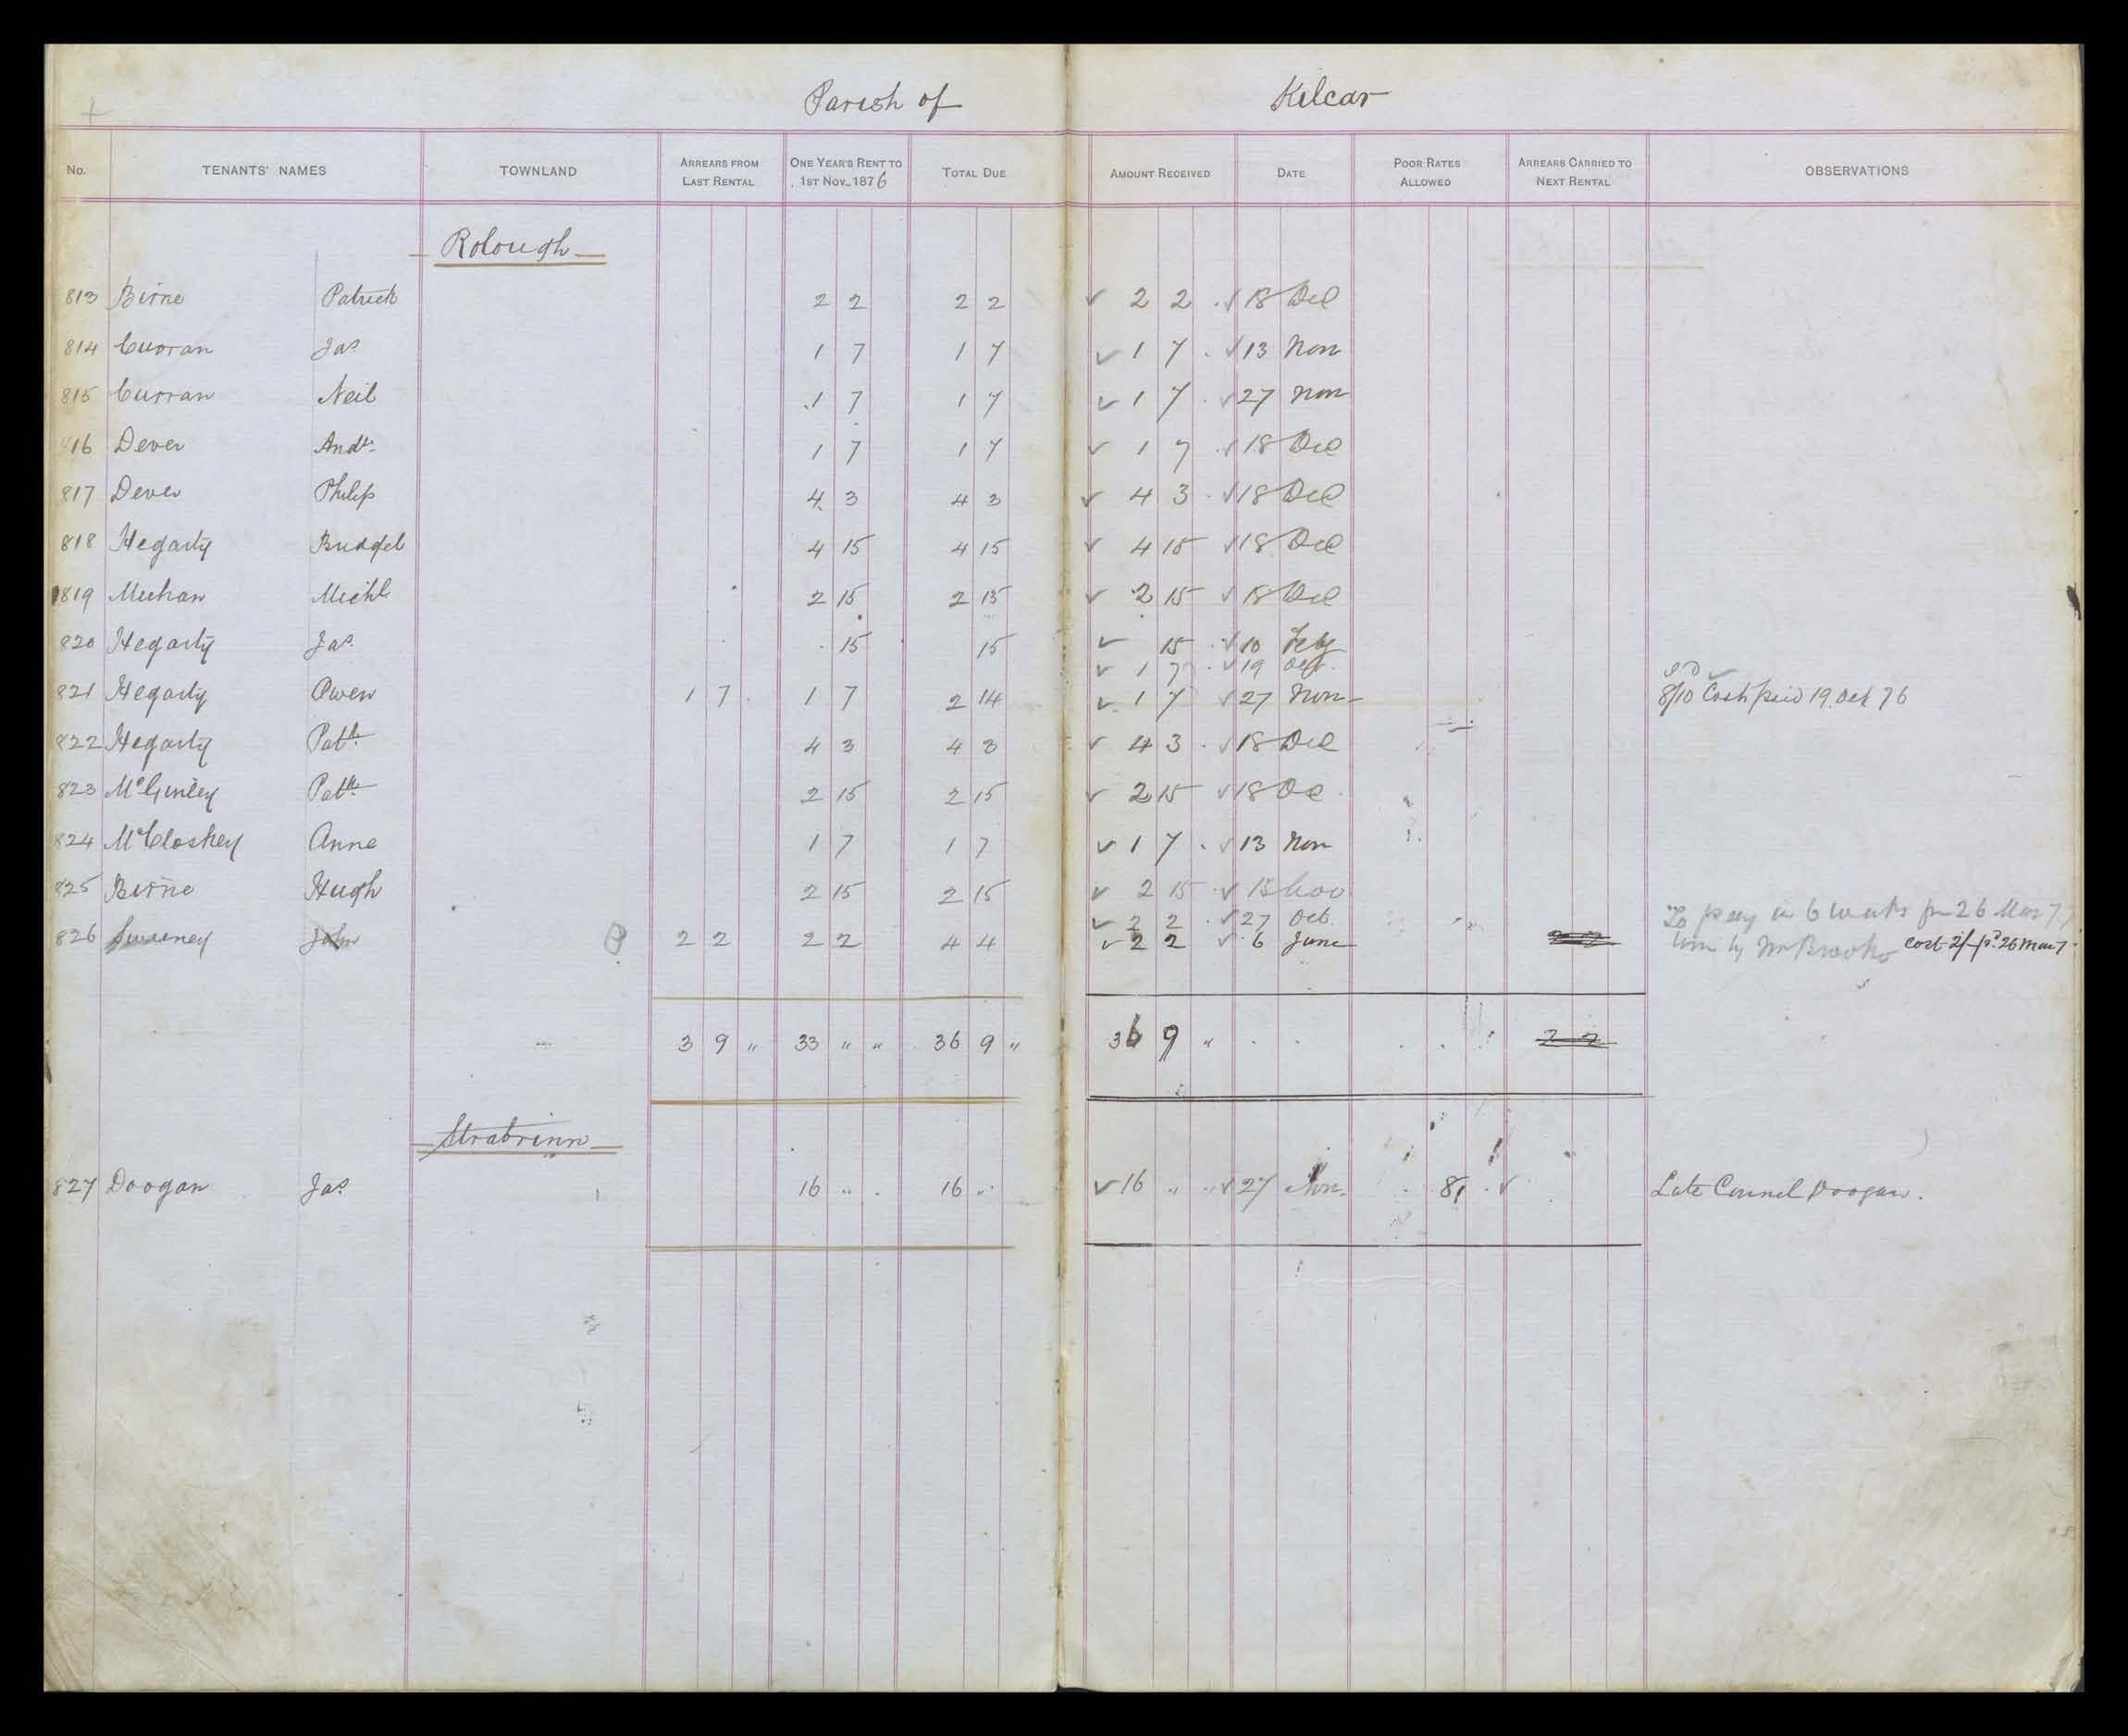 Parish of Kilcar
No. TENANTS' NAMES TOWNLAND ARREARS FROM LAST RENTAL ONE YEAR'S RENT TO 1ST NOV., 1876 TOTAL DUE AMOUNT RECEIVED DATE POOR RATES ALLOWED ARREARS CARRIED TO NEXT RENTAL OBSERVATIONS
Rolough
813 Birne Patrick 2 2 2 2 ✓ 2 2 . ✓ 18 Dec
814 Curran Jas 1 7 1 7 ✓ 1 7 . ✓ 13 Nov
815 Curran Neil 1 7 1 7 ✓ 1 7 . ✓ 27 Nov
816 Dever Andw 1 7 1 7 ✓ 1 7 . ✓ 18 Dec
817 Dever Philip 4 3 4 3 ✓ 4 3 . ✓ 18 Dec
818 Hegarty Bridget 4 15 4 15 ✓ 4 15 ✓ 18 Dec
819 Meehan Michl 2 15 2 15 ✓ 2 15 ✓ 18 Dec
820 Hegarty Jas 15 15 ✓ 15 . ✓ 10 Feby
✓ 1 7 . ✓ 19 Oct
821 Hegarty Owen 1 7 1 7 2 14 ✓ 1 7 ✓ 27 Nov 8/10 Costs paid 19 Oct 76
822 Hegarty Patk 4 3 4 3 ✓ 4 3 . ✓ 18 Dec
823 McGinley Patk 2 15 2 15 ✓ 2 15 ✓ 18 De
824 McCloskey Anne 1 7 1 7 ✓ 1 7 . ✓ 13 Nov
825 Birne Hugh 2 15 2 15 ✓ 2 15 ✓ 15 Nov
✓ 2 2 . ✓ 27 Oct. To pay in 6 weeks fm 26 Mar 77
826 Sweeney John 2 2 2 2 4 4 ✓ 2 2 ✓ 6 June 2 2 by Mr Brooke cost 2/- pd 26 Mar 7
3 9 " 33 " " 36 9 " 36 9 " 2 2
Strabrinn
827 Doogan Jas 16 " . 16 " ✓ 16 " " ✓ 27 Nov. 8 1 . ✓ Late Connel Doogan.